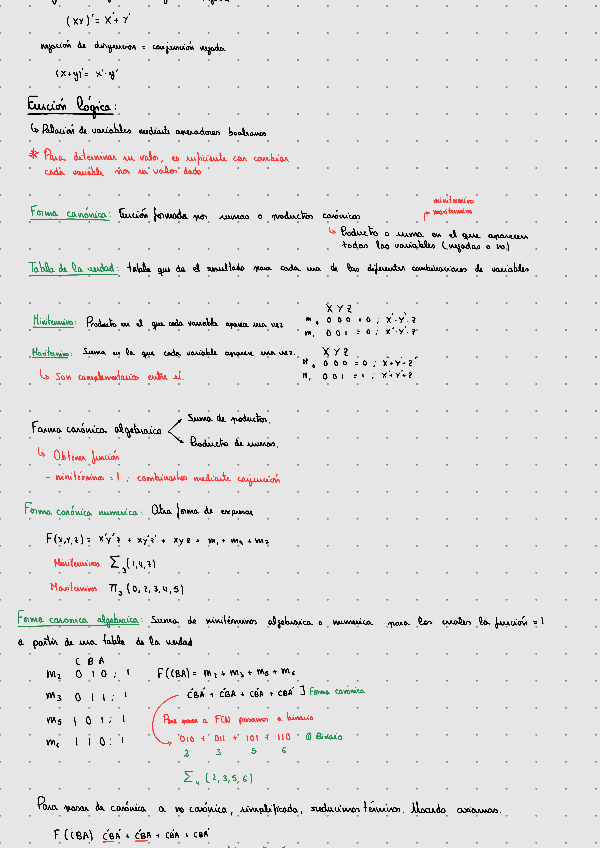 (XY)' = X' + Y'
negación de disyunción = conjunción negada
(X+y)' = x'·y'
Función lógica:
↳ Relación de variables mediante operadores booleanos
* Para determinar su valor, es suficiente con cambiar
cada variable por su valor dado
minitermino
maxitermino
Forma canónica: Función formada por sumas o productos canónicos
↳ Producto o suma en el que aparecen
todas las variables (negadas o no)
Tabla de la verdad: tabla que da el resultado para cada una de las diferentes combinaciones de variables
X Y Z
Minitermino: Producto en el que cada variable aparece una vez
m₀ 0 0 0 = 0 ; X'·Y'·Z'
m₁ 0 0 1 = 0 ;
Maxitermino: Suma en la que cada variable aparece una vez.
X Y Z
M₀ 0 0 0 = 0 ;
M₁ 0 0 1 = 1 ;
↳ Son complementarios entre sí.
Forma canónica algebraica
Suma de productos.
Producto de sumas.
↳ Obtener función
- minitérminos = 1 ; combinarlos mediante conjunción
Forma canónica numerica: Otra forma de expresar
F(x,y,z) = x'y'z + xy'z' + xyz = m₁ + m₄ + m₇
Miniterminos Σ₃ (1,4,7)
Maxiterminos Π₃ (0,2,3,4,5)
Forma canonica algebraica: Suma de minitérminos algebraica o numerica para los cuales la función = 1
a partir de una tabla de la verdad
C B A
m₂ 0 1 0 ; 1 F(CBA) = m₂ + m₃ + m₅ + m₆
m₃ 0 1 1 ; 1 C'BA' + C'BA + CB'A + CBA' ] Forma canónica
m₅ 1 0 1 ; 1 Para pasar a FCN pasamos a binario
m₆ 1 1 0 ; 1 010 + 011 + 101 + 110 Binario
2 3 5 6
Σ₄ (2,3,5,6)
Para pasar de canónica a no canónica, simplificada, reducimos términos. Usando axiomas.
F(CBA) C'BA' + C'BA + CB'A + CBA'